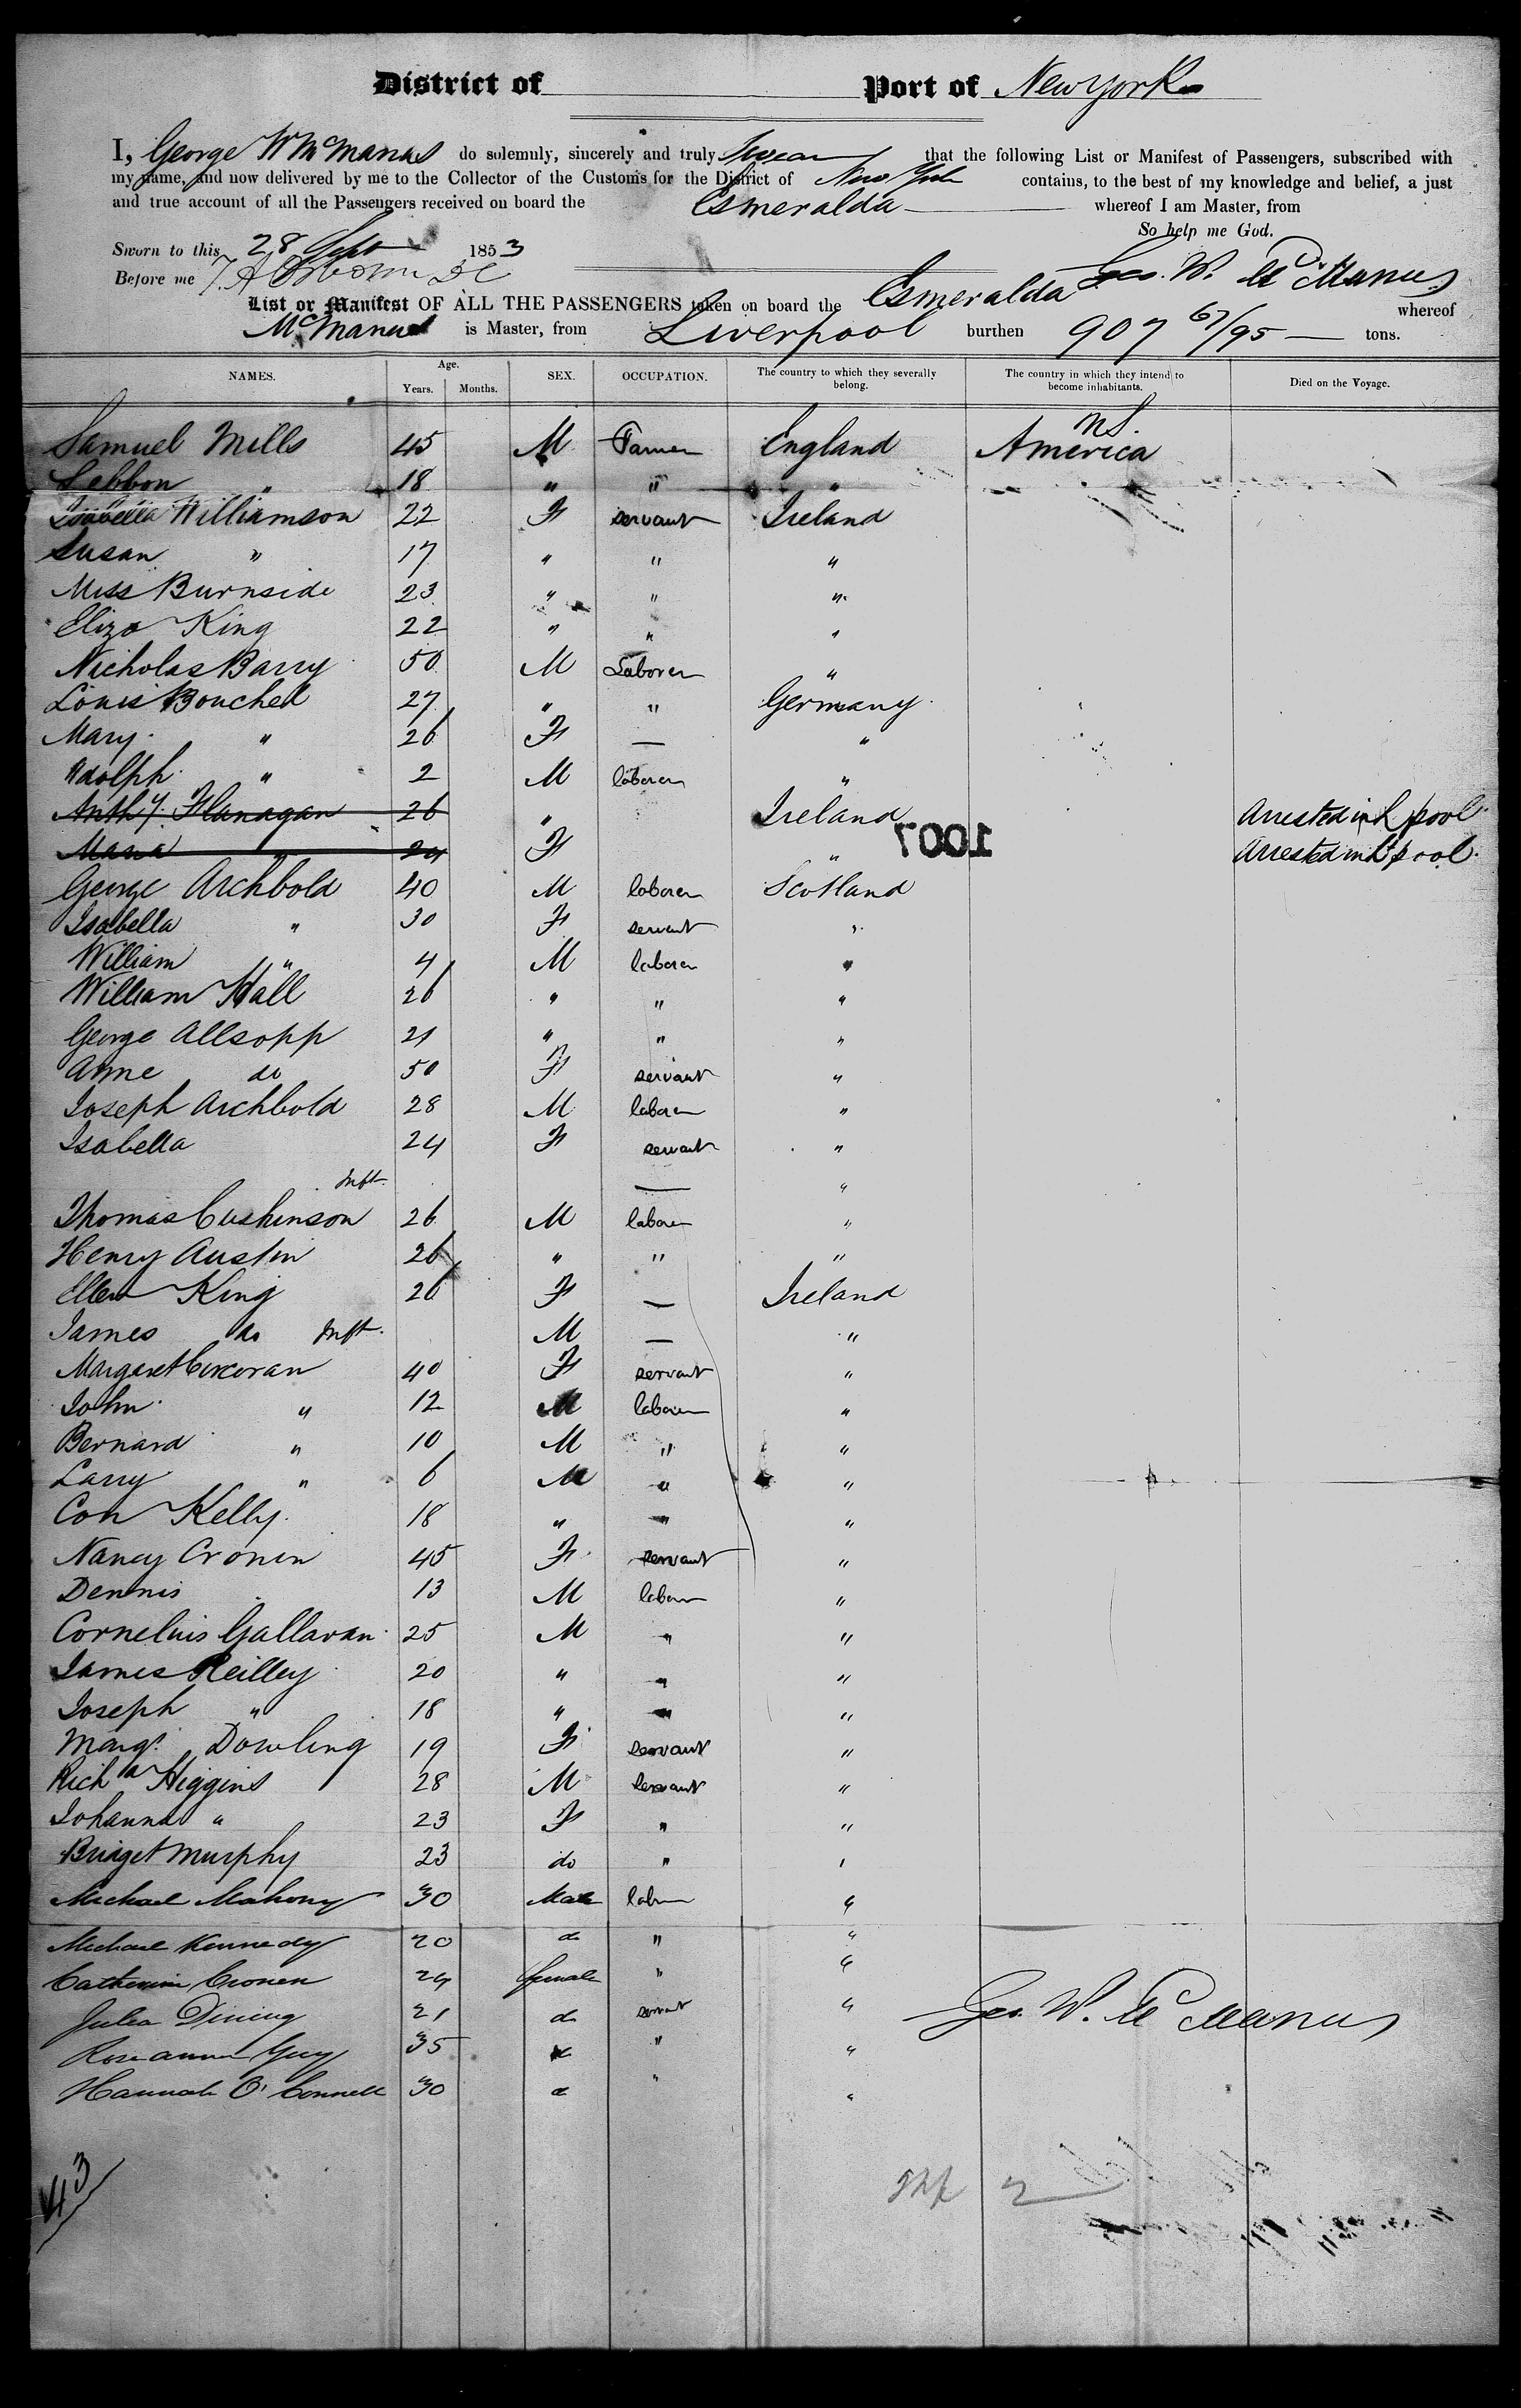 District of Port of New York
I, George W McManus do solemnly, sincerely and truly Swear that the following List or Manifest of Passengers, subscribed with
my name, and now delivered by me to the Collector of the Customs for the District of New York contains, to the best of my knowledge and belief, a just
and true account of all the Passengers received on board the Esmeralda whereof I am Master, from
So help me God.
Sworn to this 28 Sept 1853
Before me Geo. W. McManus
List or Manifest OF ALL THE PASSENGERS taken on board the Esmeralda whereof
McManus is Master, from Liverpool burthen 907 67/95 tons.
NAMES. Age. Years. Months. SEX. OCCUPATION. The country to which they severally belong. The country in which they intend to become inhabitants. Died on the Voyage.
Samuel Mills 45 M Farmer England America
Lebbon " 18 " " "
Isabella Williamson 22 F servant Ireland
Susan " 17 " " "
Miss Burnside 23 " " "
Eliza King 22 " " "
Nicholas Barry 50 M Laborer "
Louis Bouchel 27 " " Germany
Mary " 26 F — "
Adolph " 2 M laborer "
Anthy. Flanagan 26 " Ireland Arrested in L'pool
Maria 24 F " Arrested in L'pool.
1007
George Archbold 40 M laborer Scotland
Isabella " 30 F servant "
William " 4 M laborer "
William Hall 26 " " "
George Allsopp 21 " " "
Anne do 50 F servant "
Joseph Archbold 28 M laborer "
Isabella 24 F servant "
Inft. — "
Thomas Cushinson 26 M laborer "
Henry Austin 26 " " "
Ellen King 26 F — Ireland
James do Inft. M — "
Margaret Corcoran 40 F servant "
John " 12 M laborer "
Bernard " 10 M " "
Larry " 6 M " "
Con Kelly 18 " " "
Nancy Cronen 45 F servant "
Dennis 13 M laborer "
Cornelius Gallavan 25 M " "
James Reilley 20 " " "
Joseph " 18 " " "
Margt. Dowling 19 F servant "
Richd Higgins 28 M servant "
Johanna " 23 F " "
Bridget Murphy 23 do " "
Michael Mahony 30 Male labr "
Michael Kennedy 20 do " "
Catherine Cronen 24 female " "
Julia Dining 21 do servant "
Geo. W. McManus
Roseanna Guy 35 do " "
Hannah O'Connell 30 do " "
43